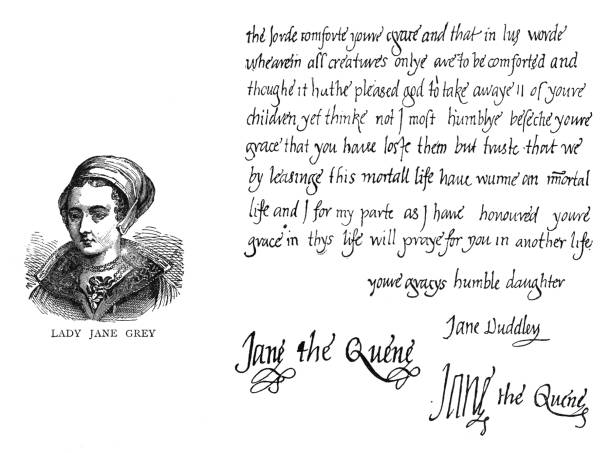 the lorde comforte youre grace and that in his worde
whearein all creatures onlye are to be comforted and
thoughe it hathe pleased god to take awaye 11 of youre
children yet thinke not I most humblye beseche youre
grace that you haue loste them but truste that we
by leasinge this mortall life haue wunne an immortal
life and I for my parte as I haue honoured youre
grace in thys life will praye for you in another life.
youre gracys humble daughter
Jane Duddley
LADY JANE GREY
Jane the Quene
Jane the Quene